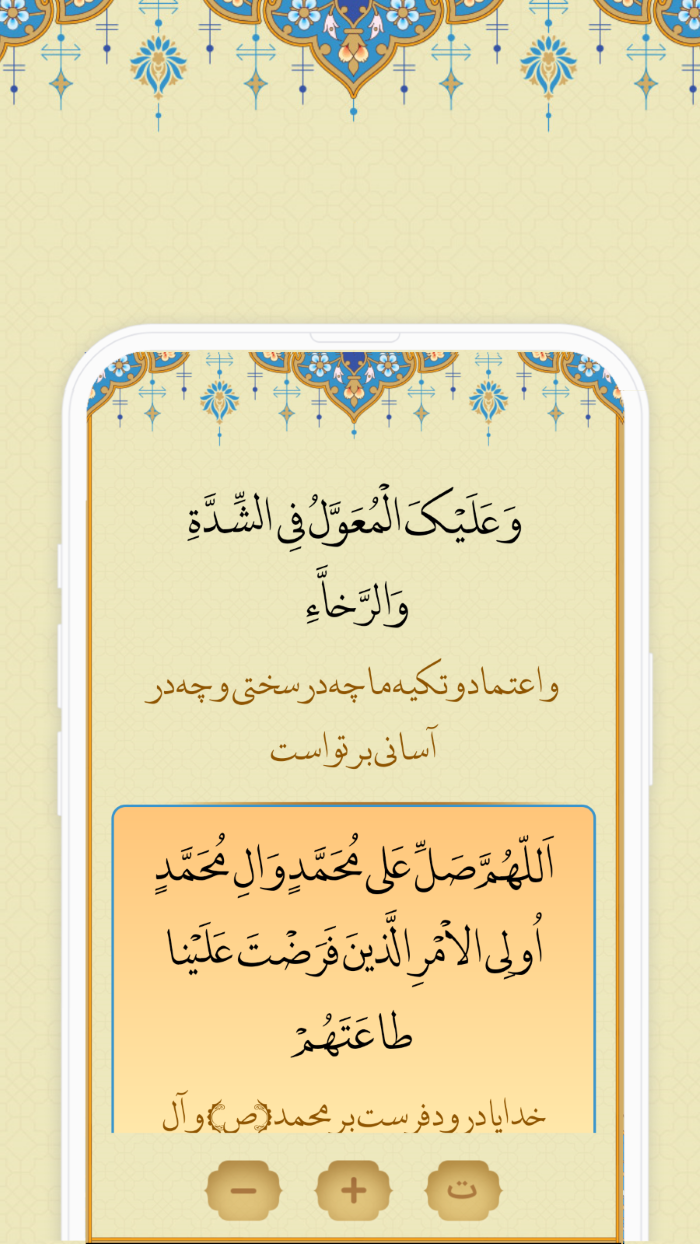 وَعَلَیْکَ الْمُعَوَّلُ فِی الشِّدَّةِ
وَالرَّخآَّءِ
و اعتماد و تکیه ما چه در سختی و چه در
آسانی بر تو است
اَللّهُمَّ صَلِّ عَلی مُحَمَّدٍ وَ الِ مُحَمَّدٍ
اُولِی الاَْمْرِ الَّذینَ فَرَضْتَ عَلَیْنا
طاعَتَهُمْ
خدایا درود فرست بر محمد (ص) و آل
ت + −